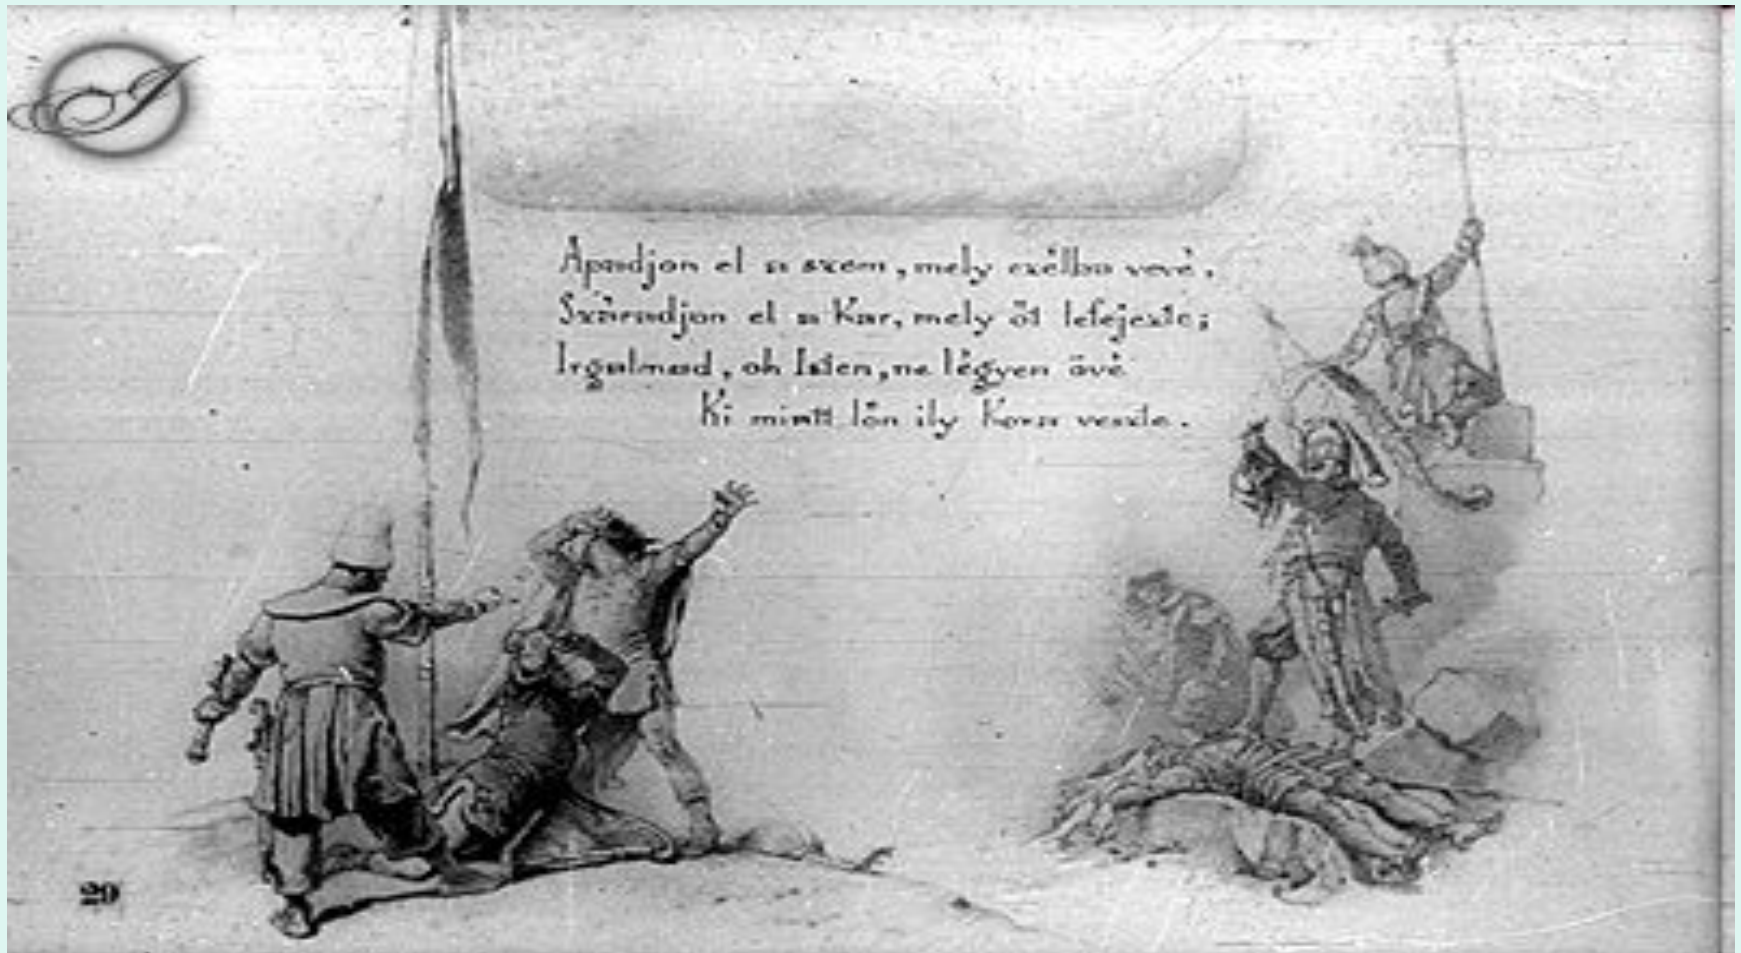 Apadjon el a szem, mely czélba vevé,
Száradjon el a Kar, mely őt lefejezte;
Irgalmad, oh Isten, ne légyen övé
Ki miatt lőn ily Kora veszte.
29